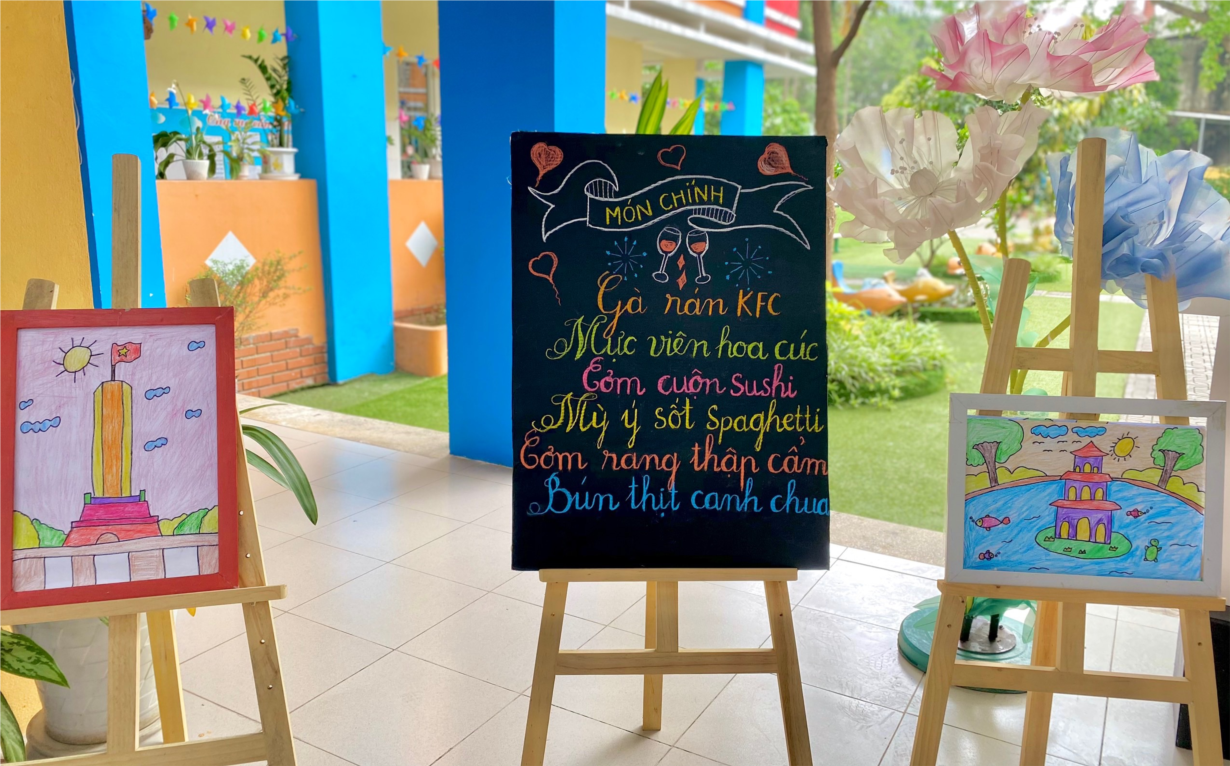 MÓN CHÍNH
Gà rán KFC
Mực viên hoa cúc
Cơm cuộn sushi
Mỳ ý sốt spaghetti
Cơm rang thập cẩm
Bún thịt canh chua